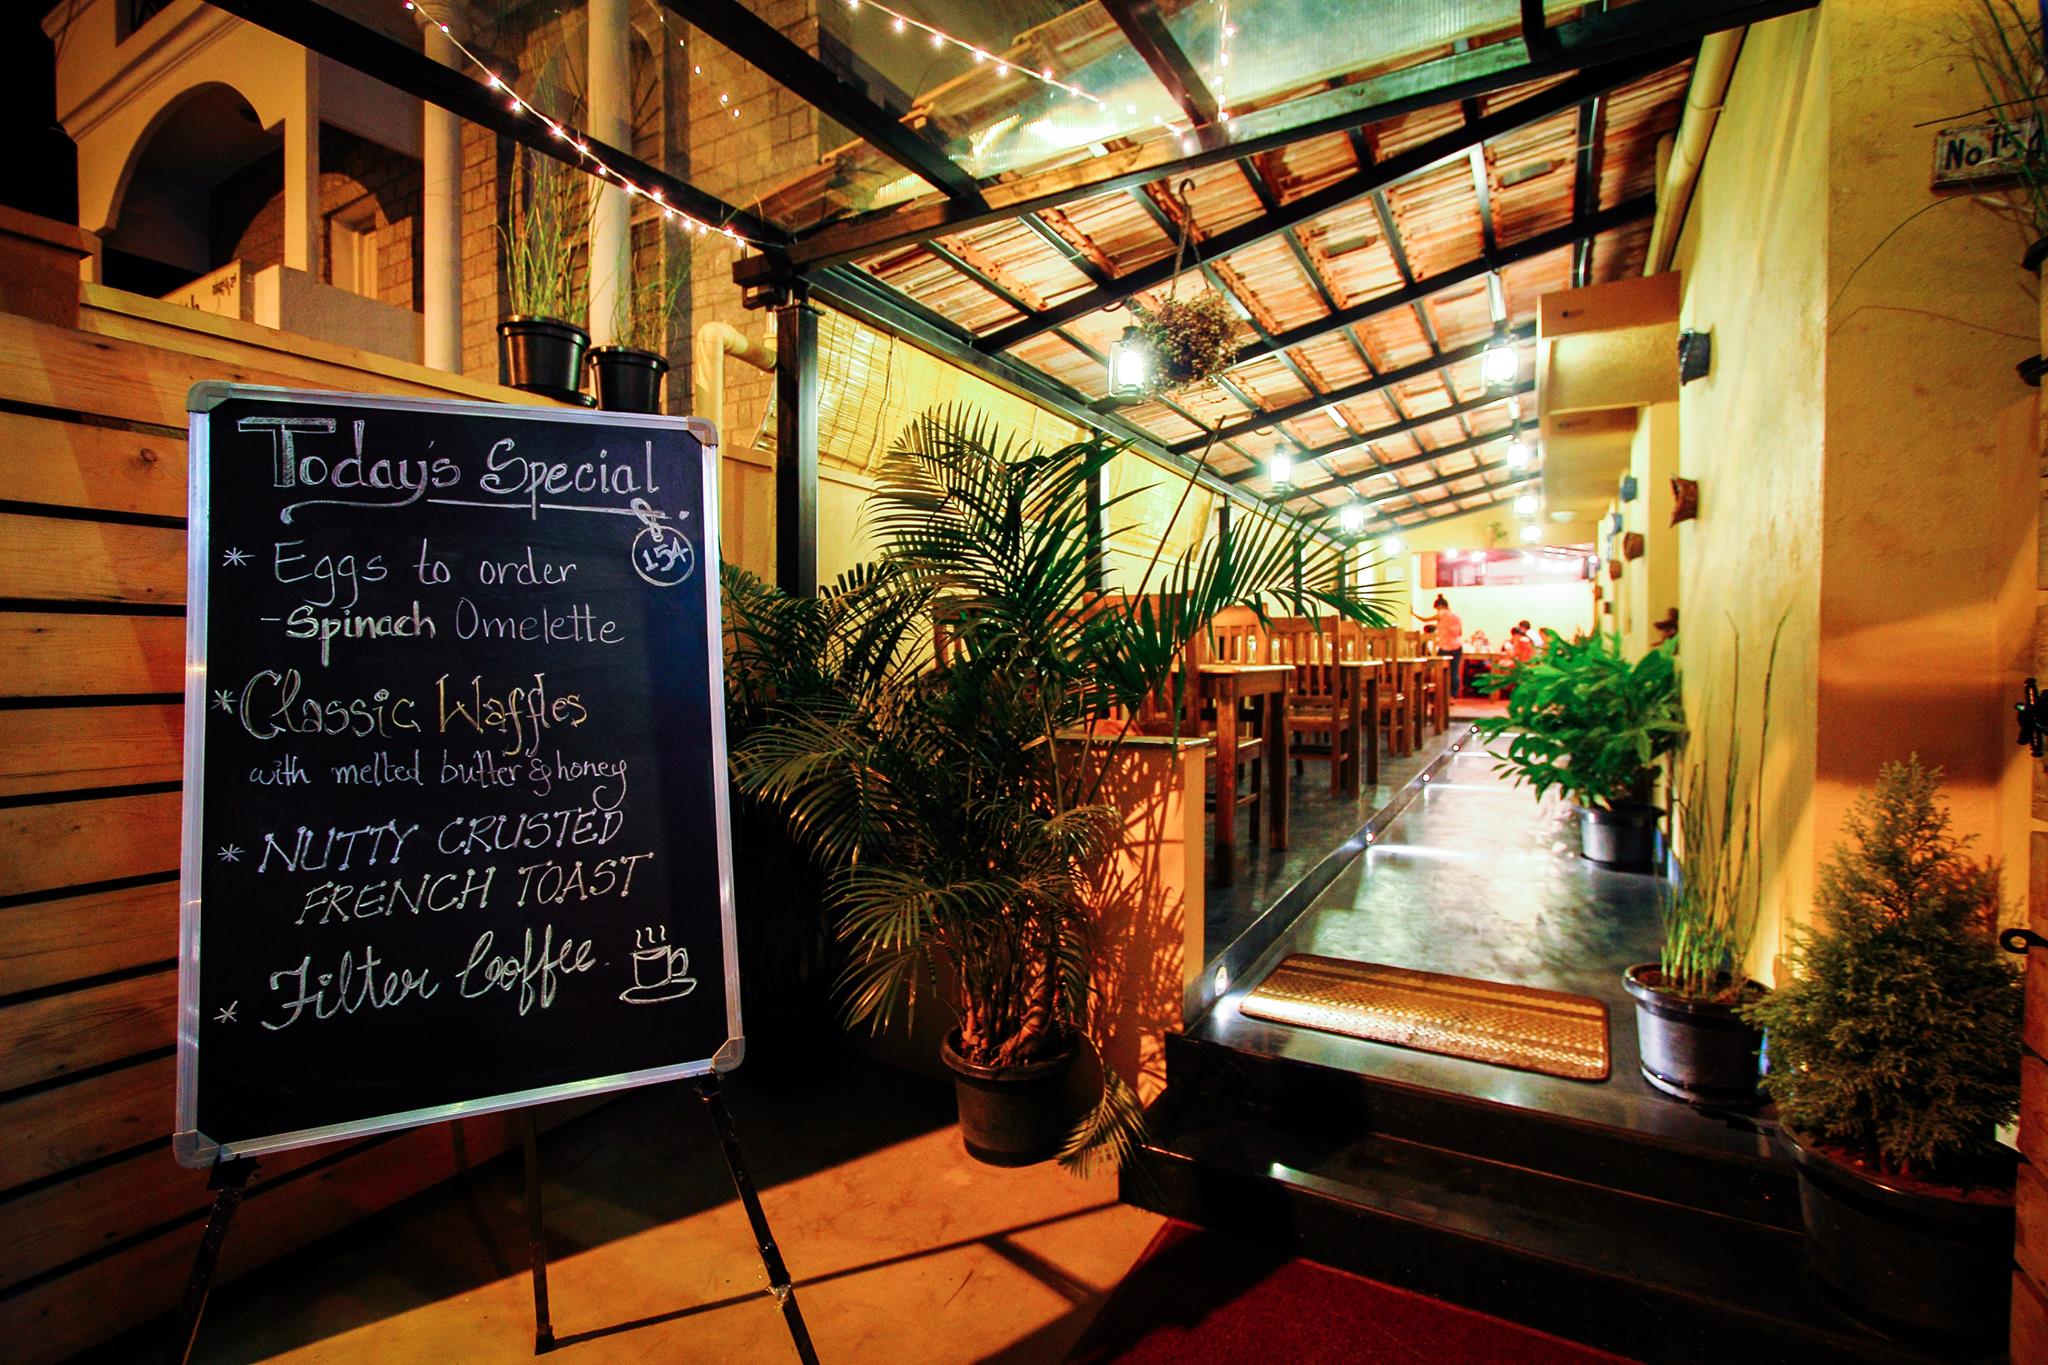 Today's Special
154
* Eggs to order
- Spinach Omelette
* Classic Waffles
with melted butter & honey
* NUTTY CRUSTED
FRENCH TOAST
* Filter Coffee
No 154